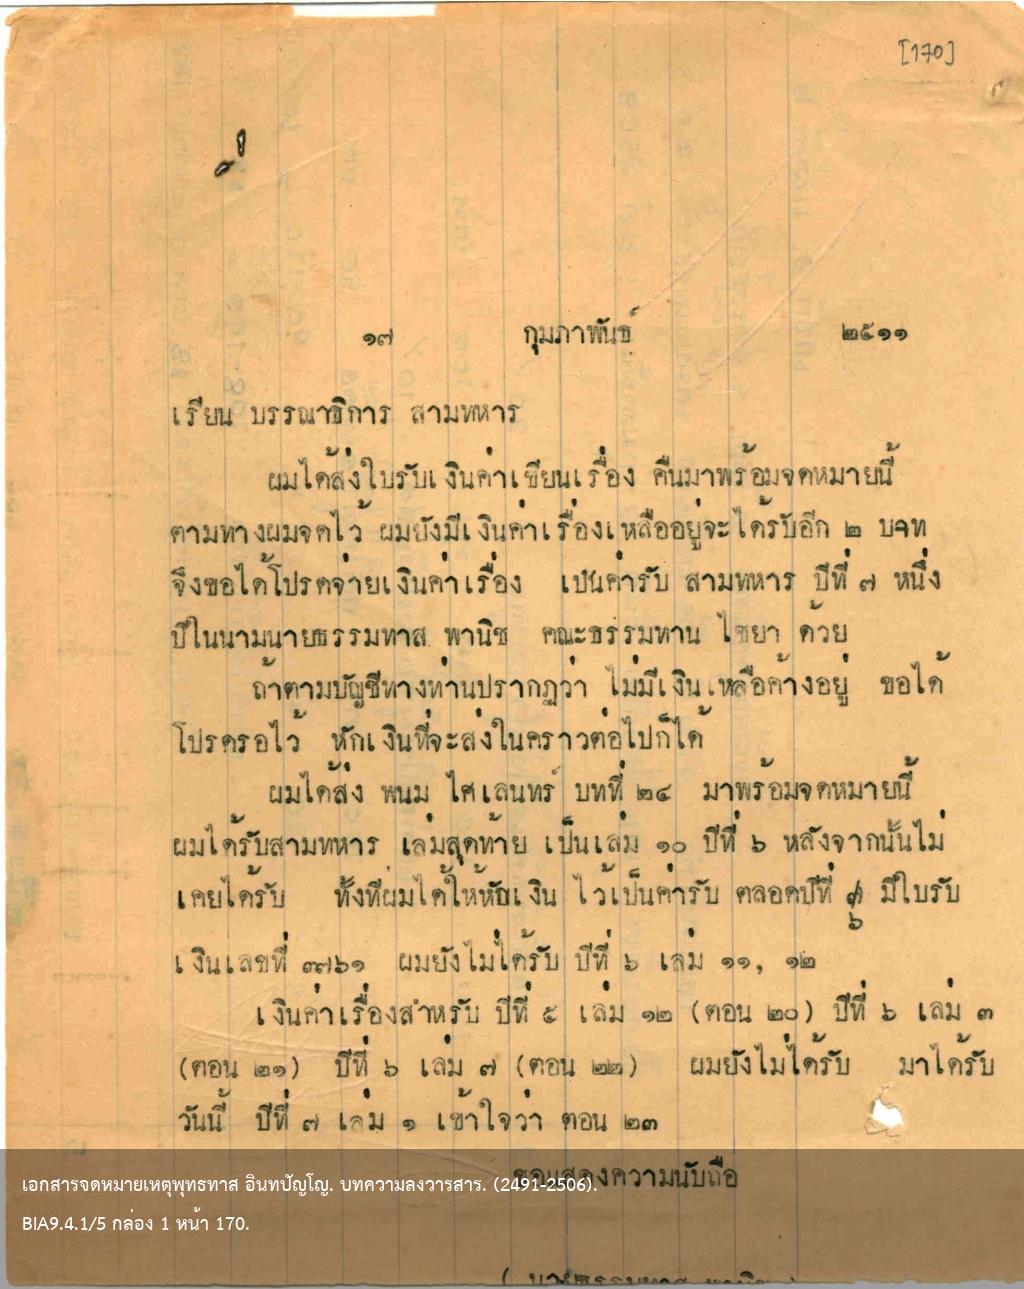 [170]
๑๗ กุมภาพันธ์ ๒๕๑๑
เรียน บรรณาธิการ สามทหาร
ผมได้ส่งใบรับเงินค่าเขียนเรื่อง คืนมาพร้อมจดหมายนี้
ตามทางผมจดไว้ ผมยังมีเงินค่าเรื่องเหลืออยู่จะได้รับอีก ๒ บาท
จึงขอได้โปรดจ่ายเงินค่าเรื่อง เป็นค่ารับ สามทหาร ปีที่ ๗ หนึ่ง
ปีในนามนายธรรมทาส พานิช คณะธรรมทาน ไชยา ด้วย
ถ้าตามบัญชีทางท่านปรากฏว่า ไม่มีเงินเหลือค้างอยู่ ขอได้
โปรดรอไว้ หักเงินที่จะส่งในคราวต่อไปก็ได้
ผมได้ส่ง พนม ไศเลนทร์ บทที่ ๒๔ มาพร้อมจดหมายนี้
ผมได้รับสามทหาร เล่มสุดท้าย เป็นเล่ม ๑๐ ปีที่ ๖ หลังจากนั้นไม่
เคยได้รับ ทั้งที่ผมได้ให้หักเงิน ไว้เป็นค่ารับ ตลอดปีที่ ๖ มีใบรับ
เงินเลขที่ ๓๗๖๑ ผมยังไม่ได้รับ ปีที่ ๖ เล่ม ๑๑, ๑๒
เงินค่าเรื่องสำหรับ ปีที่ ๕ เล่ม ๑๒ (ตอน ๒๐) ปีที่ ๖ เล่ม ๓
(ตอน ๒๑) ปีที่ ๖ เล่ม ๗ (ตอน ๒๒) ผมยังไม่ได้รับ มาได้รับ
วันนี้ ปีที่ ๗ เล่ม ๑ เข้าใจว่า ตอน ๒๓
ขอแสดงความนับถือ
เอกสารจดหมายเหตุพุทธทาส อินทปัญโญ. บทความลงวารสาร. (2491-2506).
BIA9.4.1/5 กล่อง 1 หน้า 170.